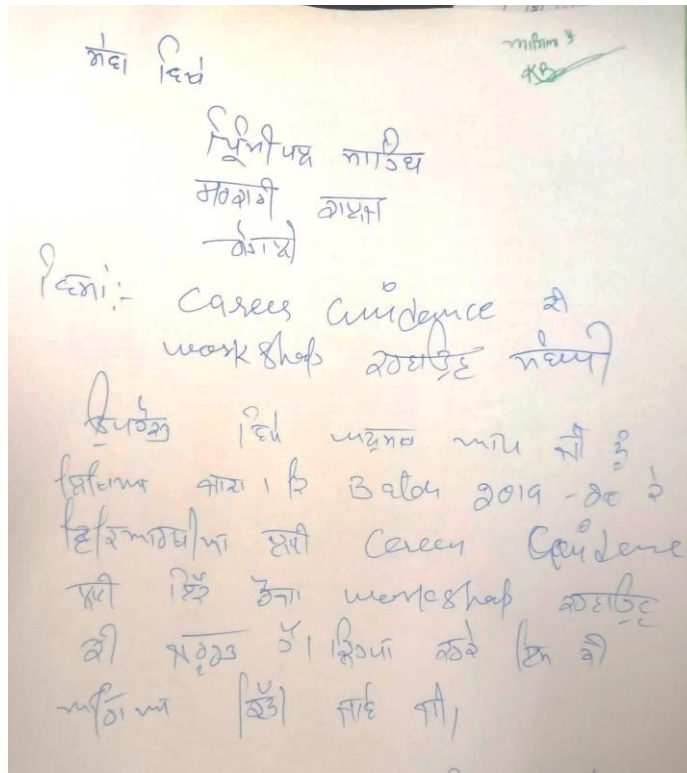 ਸੇਵਾ ਵਿਖੇ
KB
ਪ੍ਰਿੰਸੀਪਲ ਸਾਹਿਬ
ਸਰਕਾਰੀ ਕਾਲਜ
ਵਿਸ਼ਾ:- Career Guidence ਦੀ
workshop ਕਰਵਾਉਣ ਸੰਬਧੀ
ਉਪਰੋਕਤ ਵਿਸ਼ੇ ਅਨੁਸਾਰ ਆਪ ਜੀ ਨੂੰ
ਜਾਂਦਾ । ਕਿ Batch 2019 - ਦੇ
ਵਿਦਿਆਰਥੀਆ ਲਈ Career Guidence
ਲਈ ਇੱਕ ਰੋਜਾ workshop ਕਰਵਾਉਣ
ਦੀ ਜਰੂਰਤ ਹੈ। ਕ੍ਰਿਪਾ ਕਰਕੇ ਇਸ ਦੀ
ਆਗਿਆ ਦਿੱਤੀ ਜਾਵੇ ਜੀ।